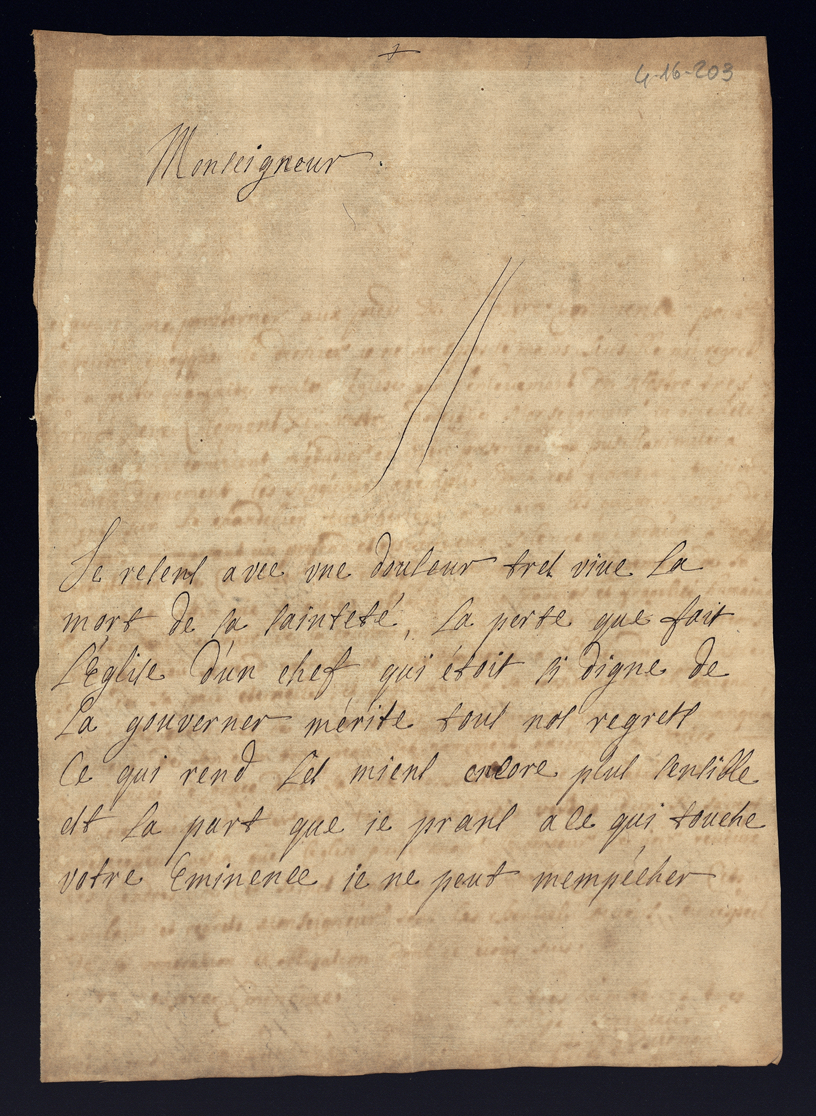 4-16-203
Monseigneur.
Je resens avec une douleur tres vive la
mort de sa sainteté, la perte que fait
l'Eglise d'un chef qui étoit si digne de
la gouverner mérite tous nos regrets
Ce qui rend les miens encore plus sensible
est la part que je prans a ce qui touche
votre Eminence je ne peut mempécher